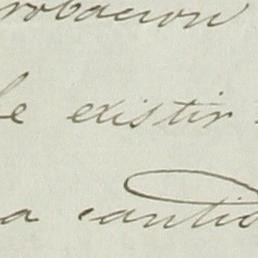 robacion
le existir
a cantid